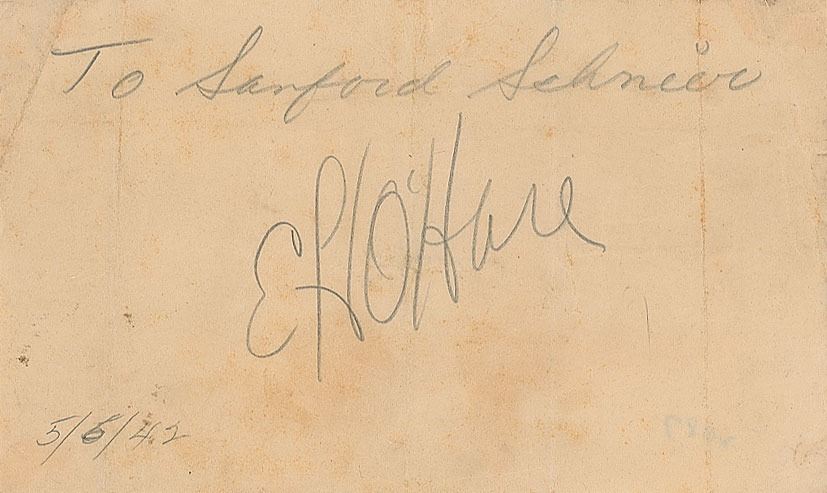 To Sanford Schnier
E H O'Hare
5/6/42